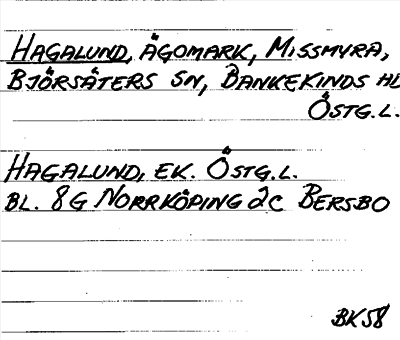 HAGALUND, ÄGOMARK, MISSMYRA,
BJÖRSÄTERS SN, BANKEKINDS HD
ÖSTG.L.
HAGALUND, EK. ÖSTG.L.
BL. 8G NORRKÖPING 2C BERSBO
BK58